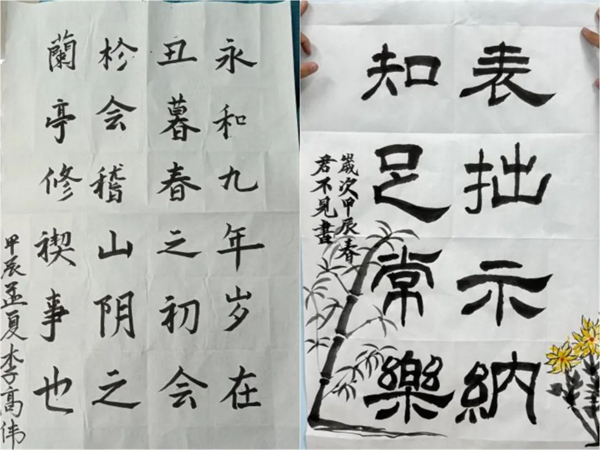 永和九年岁在
丑暮春之初会
扵会稽山阴之
蘭亭修禊事也
甲辰孟夏李高伟
表拙示納
知足常樂
嵗次甲辰春
君不見畫